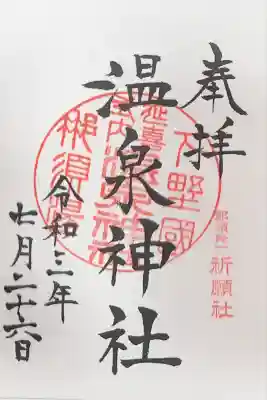 奉拝
那須与一
祈願社
温泉神社
下野國
延喜式内
温泉神社
那須郡
令和三年
七月二十六日